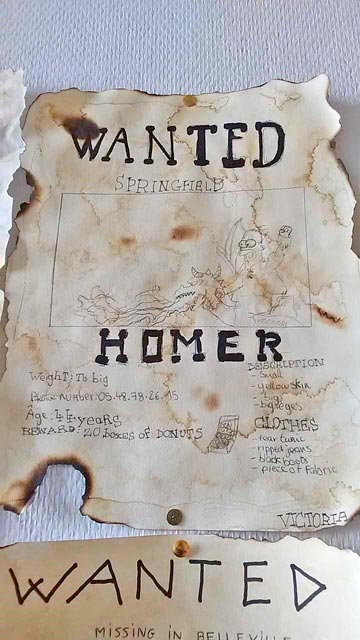 WANTED
SPRINGFIELD
HOMER
Weight: To big
Phone number: 05.48.78.26.15
Age: 44 years
REWARD: 20 boxes of DONUTS
DESCRIPTION
- Small
- yellow skin
- big
- big eyes
CLOTHES
- tear tunic
- ripped jeans
- black boots
- piece of fabric
VICTORIA
WANTED
MISSING IN BELLEVILLE